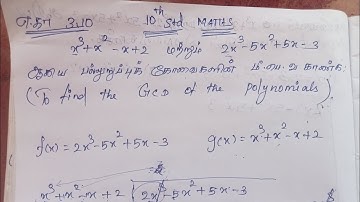 எ.கா 3.10 10th Std MATHS
x³+x²-x+2 மற்றும் 2x³-5x²+5x-3
ஆகிய பல்லுறுப்புக் கோவைகளின் மீ.பொ.வ காண்க
(To find the GCD of the polynomials)
f(x) = 2x³-5x²+5x-3 g(x) = x³+x²-x+2
x³+x²-x+2 2x³-5x²+5x-3